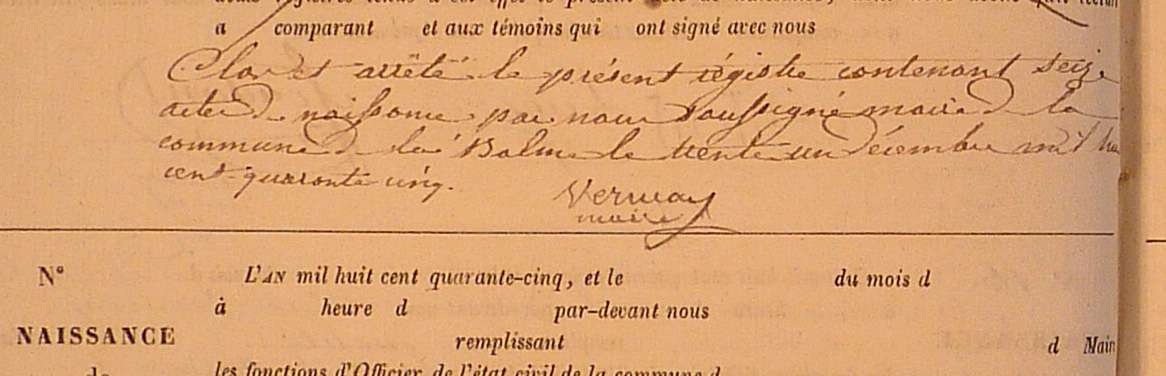 a comparant et aux témoins qui ont signé avec nous
Clos et arrêté le présent régistre contenant seize
actes de naissance par nous soussigné maire de la
commune de la Balme le trente un décembre mil hu
cent quaronte cinq.
Vernay
maire
N° L'AN mil huit cent quarante-cinq, et le du mois d
à heure d par-devant nous
NAISSANCE remplissant d Mair
de les fonctions d'Officier de l'état civil de la commune d